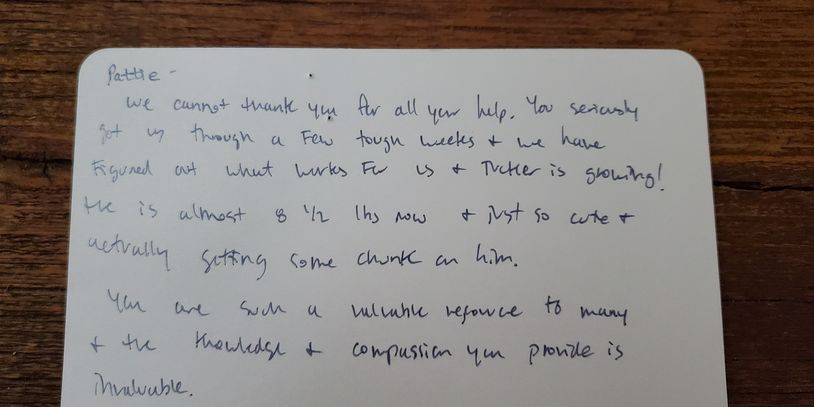 Pattie -
We cannot thank you for all your help. You seriously
got us through a few tough weeks + we have
figured out what works for us + Tucker is growing!
He is almost 8 1/2 lbs now + just so cute +
actually getting some chunk on him.
You are such a valuable resource to many
+ the knowledge + compassion you provide is
invaluable.